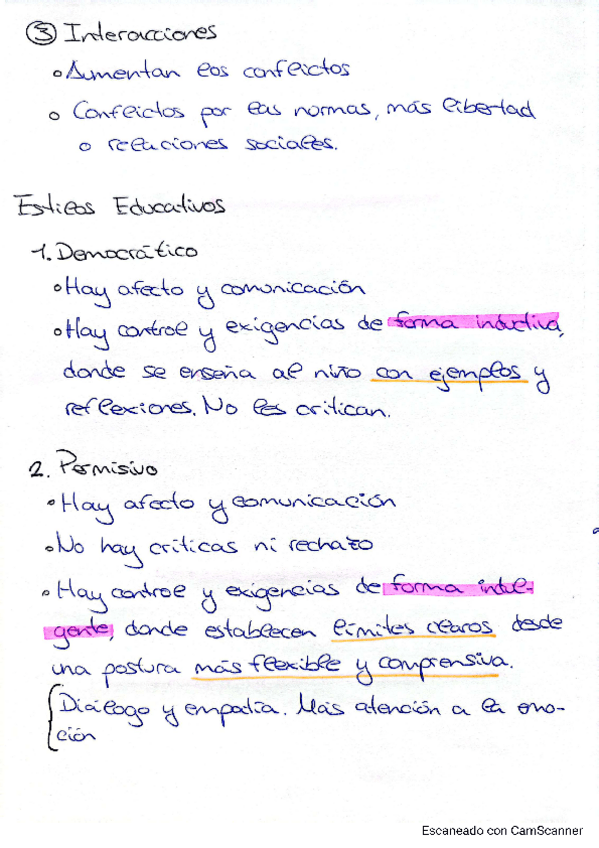 ③ Interacciones
Aumentan los conflictos
Conflictos por las normas, más libertad
o relaciones sociales.
Estilos Educativos
1. Democrático
Hay afecto y comunicación
Hay control y exigencias de forma inductiva,
donde se enseña al niño con ejemplos y
reflexiones. No les critican.
2. Permisivo
Hay afecto y comunicación
No hay criticas ni rechazo
Hay control y exigencias de forma indul-
gente, donde establecen límites claros desde
una postura más flexible y comprensiva.
Diálogo y empatía. Más atención a la emo-
ción
Escaneado con CamScanner